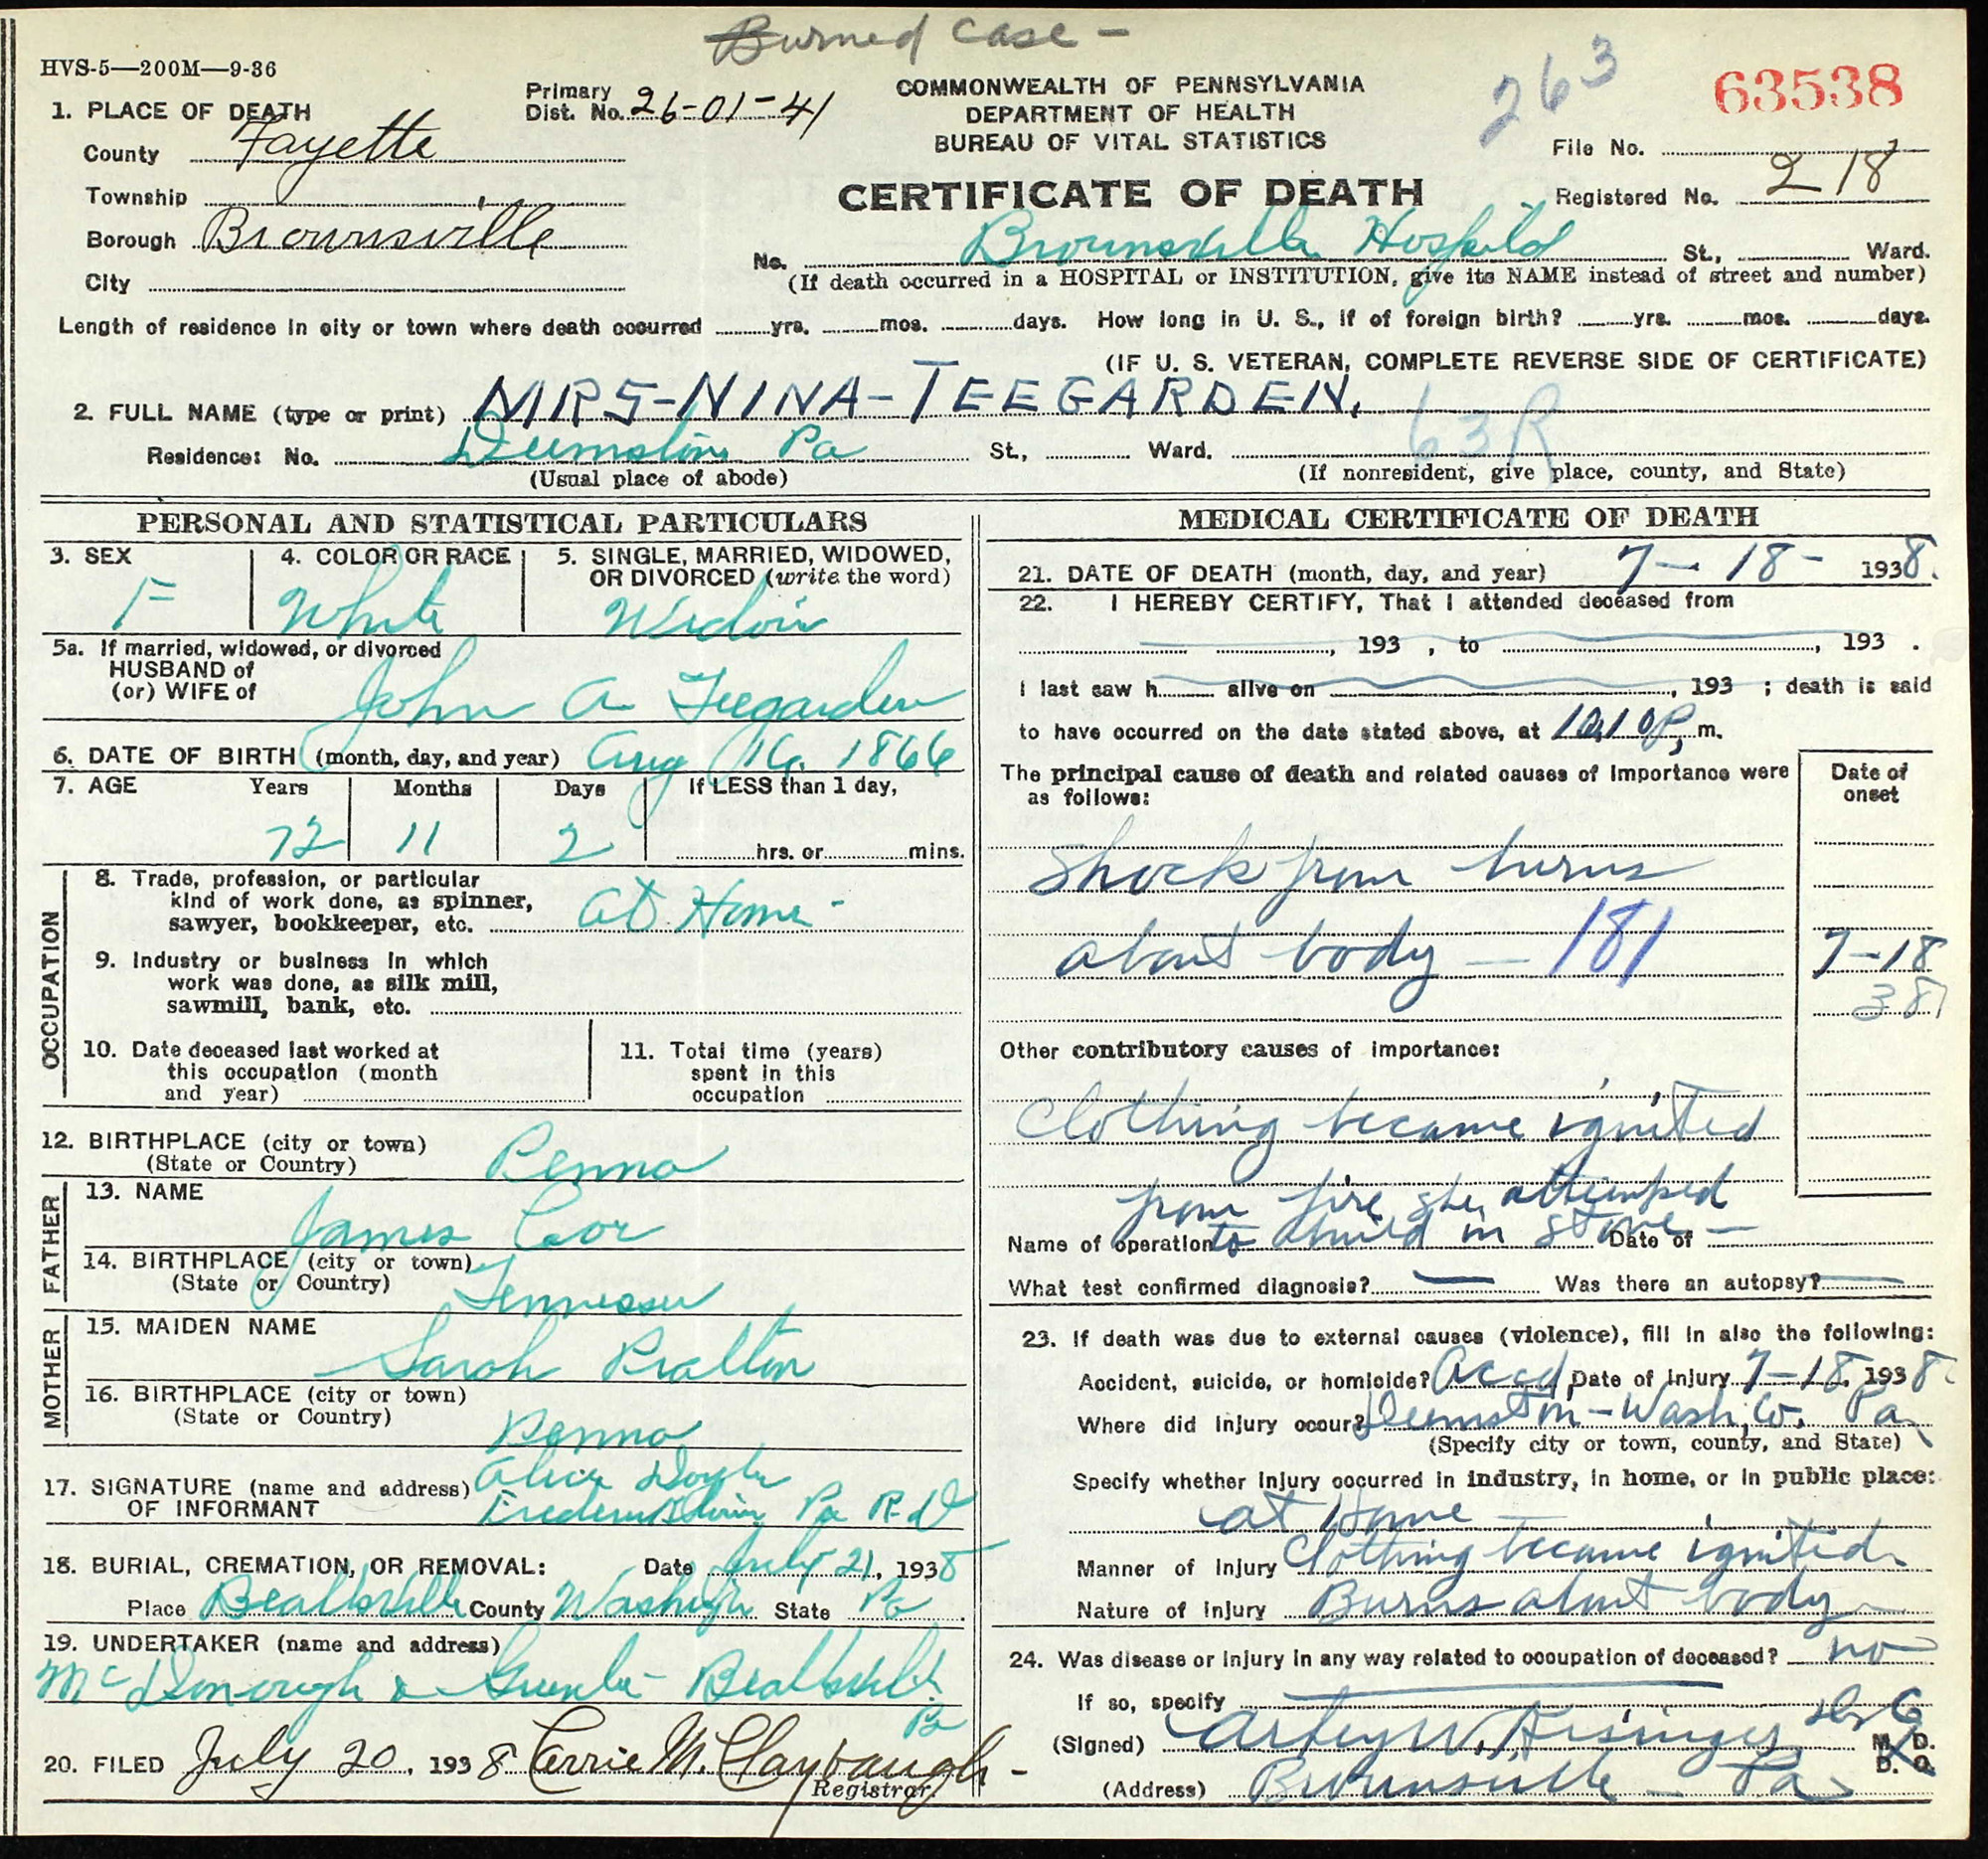 Burned case -
HVS-5—200M—9-36
263
63538
COMMONWEALTH OF PENNSYLVANIA
DEPARTMENT OF HEALTH
BUREAU OF VITAL STATISTICS
CERTIFICATE OF DEATH
Primary
Dist. No. 26-01-41
File No.
Registered No. 218
1. PLACE OF DEATH
County Fayette
Township
Borough Brownsville
City
No. Brownsville Hospital St., Ward.
(If death occurred in a HOSPITAL or INSTITUTION, give its NAME instead of street and number)
Length of residence in city or town where death occurred yrs. mos. days. How long in U. S., if of foreign birth? yrs. mos. days.
(IF U. S. VETERAN, COMPLETE REVERSE SIDE OF CERTIFICATE)
2. FULL NAME (type or print) MRS-NINA-TEEGARDEN.
63R
Residence: No. Deemston Pa St., Ward.
(Usual place of abode) (If nonresident, give place, county, and State)
PERSONAL AND STATISTICAL PARTICULARS
3. SEX F
4. COLOR OR RACE White
5. SINGLE, MARRIED, WIDOWED,
OR DIVORCED (write the word)
Widow
5a. If married, widowed, or divorced
HUSBAND of
(or) WIFE of John A Teegarden
6. DATE OF BIRTH (month, day, and year) Aug 16. 1866
7. AGE Years Months Days If LESS than 1 day,
72 11 2 hrs. or mins.
OCCUPATION
8. Trade, profession, or particular
kind of work done, as spinner,
sawyer, bookkeeper, etc. At Home -
9. Industry or business in which
work was done, as silk mill,
sawmill, bank, etc.
10. Date deceased last worked at
this occupation (month
and year)
11. Total time (years)
spent in this
occupation
12. BIRTHPLACE (city or town)
(State or Country) Penna
FATHER
13. NAME James Cox
14. BIRTHPLACE (city or town)
(State or Country) Tennessee
MOTHER
15. MAIDEN NAME
Sarah
16. BIRTHPLACE (city or town)
(State or Country) Penna
17. SIGNATURE (name and address) Alice
OF INFORMANT Fredericktown Pa R.D
18. BURIAL, CREMATION, OR REMOVAL: Date July 21, 1938
Place Beallsville County Washington State Pa
19. UNDERTAKER (name and address)
McDonough & Beallsville
Pa
20. FILED July 20, 1938 Carrie M. Claybaugh -
Registrar.
MEDICAL CERTIFICATE OF DEATH
21. DATE OF DEATH (month, day, and year) 7 - 18 - 1938.
22. I HEREBY CERTIFY, That I attended deceased from
, 193 , to , 193 .
I last saw h alive on , 193 ; death is said
to have occurred on the date stated above, at 10,10 P, m.
The principal cause of death and related causes of importance were
as follows:
Date of
onset
Shock from burns
about body — 181
7-18
38
Other contributory causes of importance:
Clothing became ignited
from fire she attempted
Name of operation to build in stove - Date of
What test confirmed diagnosis? — Was there an autopsy? —
23. If death was due to external causes (violence), fill in also the following:
Accident, suicide, or homicide? Accd Date of injury 7-18, 1938.
Where did injury occur? Deemston - Wash, Co, Pa
(Specify city or town, county, and State)
Specify whether injury occurred in industry, in home, or in public place:
at Home
Manner of injury Clothing became ignited
Nature of injury Burns about body
24. Was disease or injury in any way related to occupation of deceased? no
If so, specify
(Signed) M. D.
D. O.
(Address) Brownsville - Pa